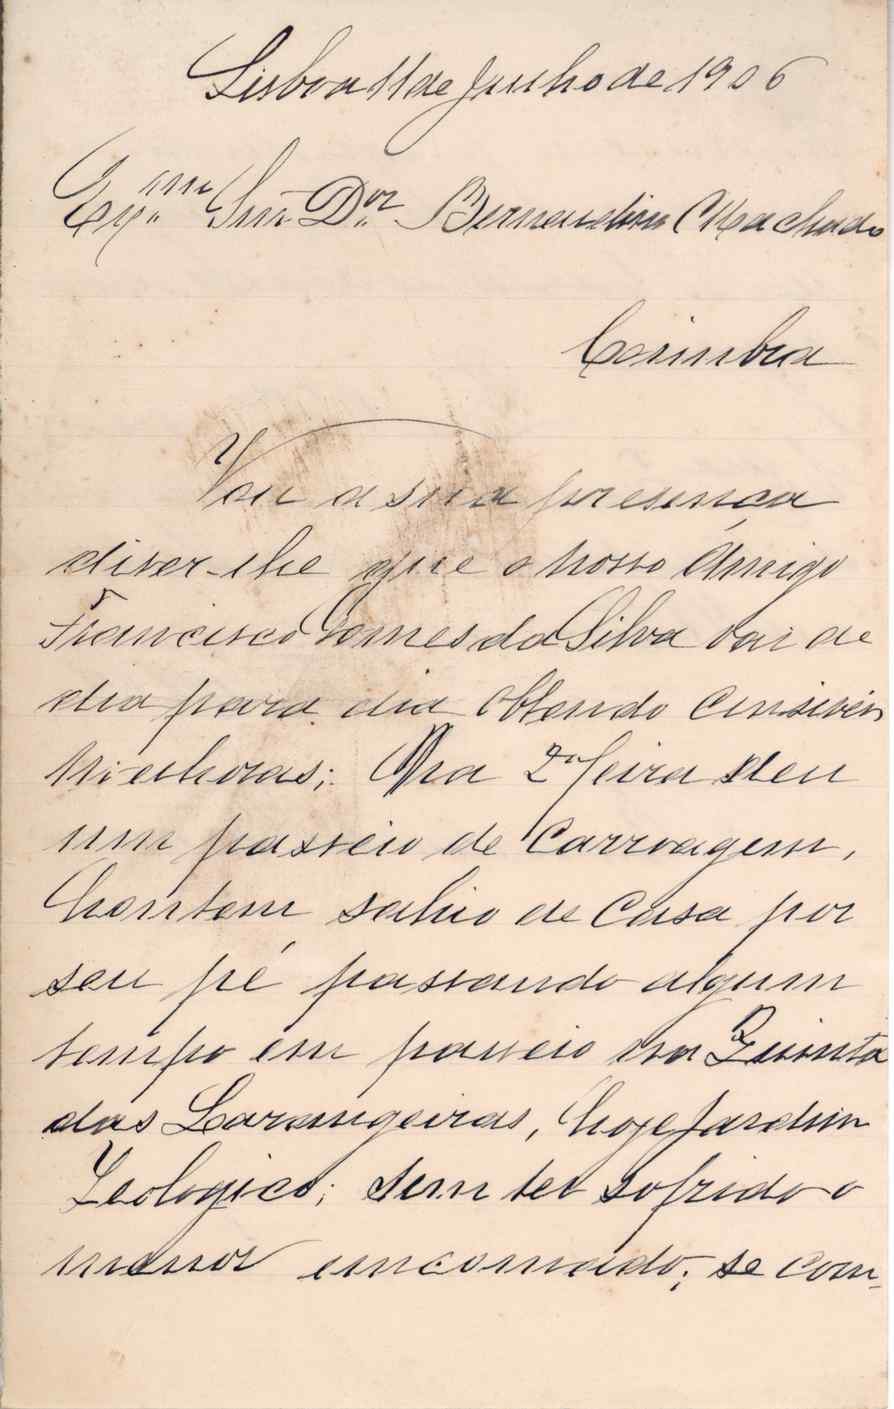 Lisboa 11 de Junho de 1906
Exmo Snr. Dor Bernardino Machado
Coimbra
Vou a sua presença
diser-lhe que o nosso Amigo
Francisco Gomes da Silva vai de
dia para dia obtendo cinsiveis
Milhoras; Na 2ª feira deu
um passeio de Carroagem,
hontem sahio de Casa por
seu pé passando algum
tempo em passeio na Quinta
das Larangeiras, hoje Jardim
Zeologico; sem ter sofrido o
menor emcomado; se com-